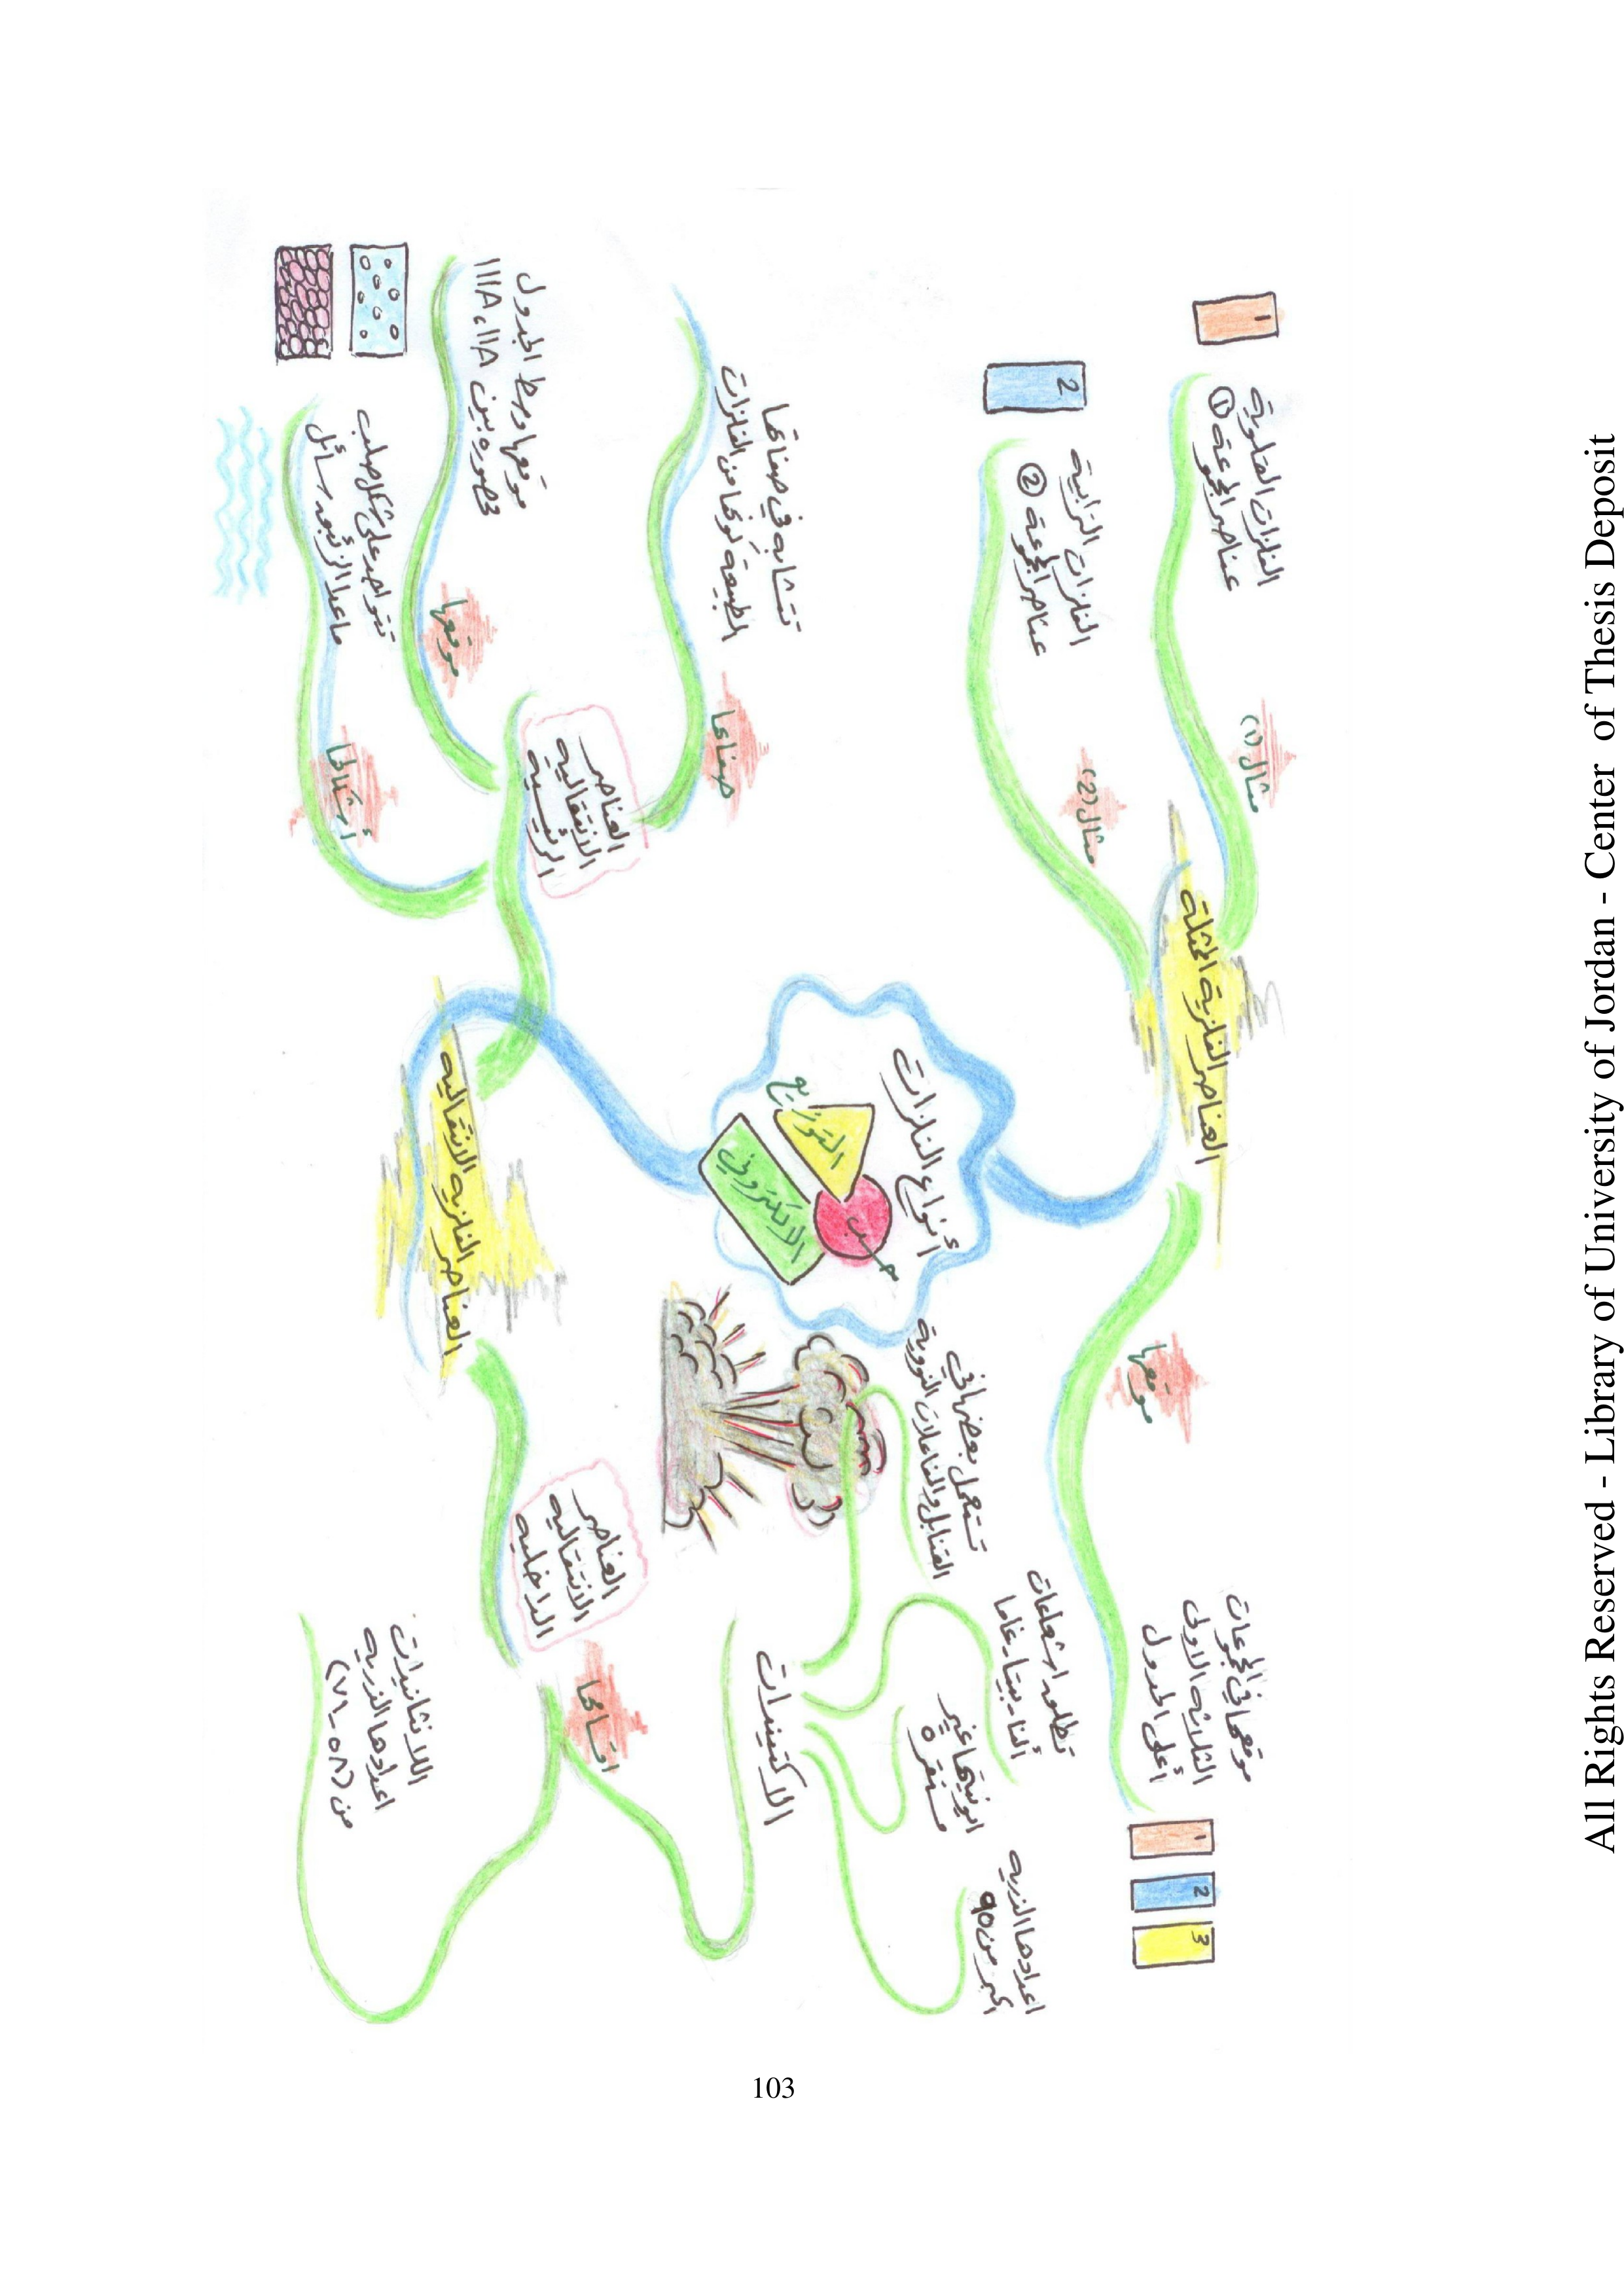 أنواع الفلزات
حسب
التوزيع
الالكتروني
العناصر الفلزية الممثلة
مثال (١)
الفلزات القلوية
عناصر المجموعة ①
1
مثال (2)
الفلزات الترابية
عناصر المجموعة ②
2
موقعها
موقعها في المجموعات
الثلاثه الاولى
أعلى الجدول
1
2
3
العناصر الفلزيه الانتقاليه
العناصر
الانتقاليه
الرئيسيه
صفاتها
تتشابه في صفاتها
الطبيعية كونها من الفلزات
موقعها
موقعها وسط الجدول
محصوره بين IIIA، IIA
أشكالها
تتواجد على شكل صلب
ماعدا الزئبق سائل
العناصر
الانتقاليه
الداخليه
اقسامها
الاكتينيدات
تستعمل بعضها في
القنابل والتفاعلات النووية
تطلق اشعاعات
ألفا، بيتا، غاما
انويتها غير
مستقره
اعدادها الذريه
اكبر من ٩٥
اللانثانيدات
اعدادها الذريه
من (٥٨-٧١)
103
All Rights Reserved - Library of University of Jordan - Center of Thesis Deposit